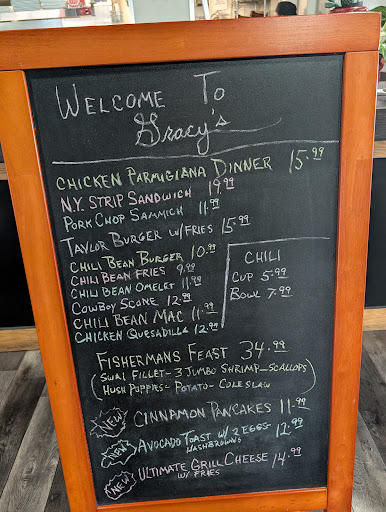 WELCOME TO
Gracy's
CHICKEN PARMIGIANA DINNER 15.99
N.Y. STRIP SANDWICH 19.99
PORK CHOP SAMMICH 11.99
TAYLOR BURGER W/FRIES 15.99
CHILI BEAN BURGER 10.99
CHILI BEAN FRIES 9.99
CHILI BEAN OMELET 11.99
COWBOY SCONE 12.99
CHILI BEAN MAC 11.99
CHICKEN QUESADILLA 12.99
CHILI
CUP 5.99
BOWL 7.99
FISHERMANS FEAST 34.99
(SWAI FILLET - 3 JUMBO SHRIMP - SCALLOPS
HUSH PUPPIES - POTATO - COLESLAW)
NEW CINNAMON PANCAKES 11.99
NEW AVOCADO TOAST W/ 2 EGGS 12.99
HASHBROWNS
NEW ULTIMATE GRILL CHEESE 14.99
W/ FRIES